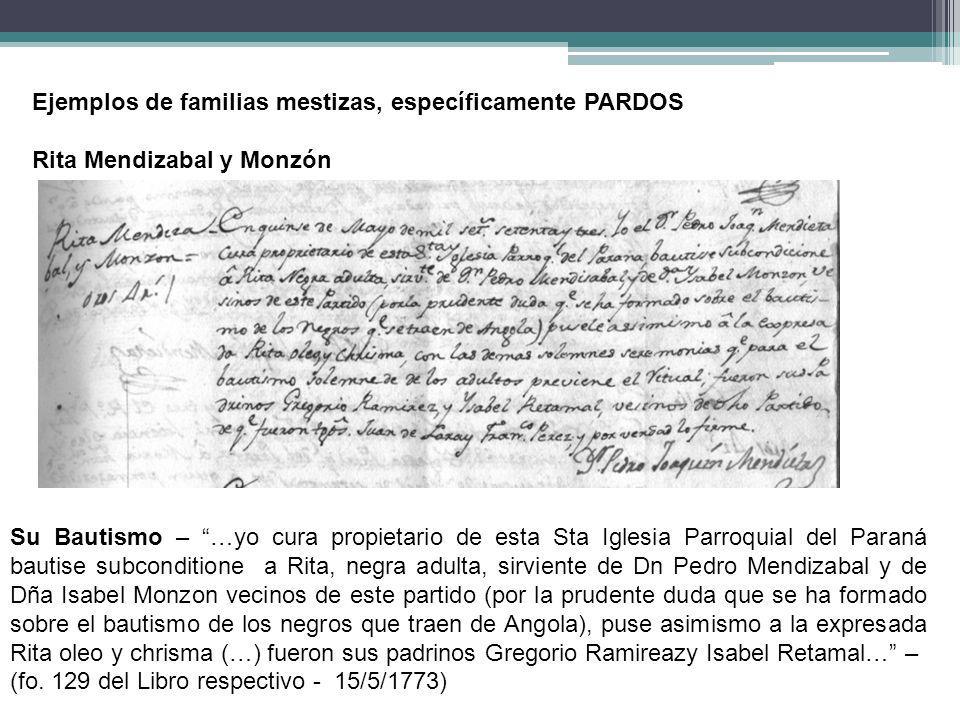 Ejemplos de familias mestizas, específicamente PARDOS
Rita Mendizabal y Monzón
Rita Mendiza
bal, y Monzon =
En quinse de Mayo de mil set.s setenta y tres. Yo el D.r Pedro Joaq.n Mendieta
Cura proprietario de esta S.ta Yglesia Parroq.l del Parana, bautise subcondicione
â Rita Negra adulta, sirv.te de D.n Pedro Mendisabal y de D.a Ysabel Monzon, ve
sinos de este Partido (por la prudente duda q.e se ha formado sobre el bautis-
mo de los Negros q.e se traen de Angola) puse le assimismo â la expresa
da Rita oleo, y Chrisma, con las demas solemnes seremonias q.e para el
bautismo solemne de los adultos previene el Ritual; fueron sus Pa
drinos Gregorio Ramirez, y Ysabel Retamal, vesinos de dho Partido
de q.e fueron tgôs. Juan de Lara y Fran.co Perez, y por verdad lo firme.
D.r Pedro Joaquin Mendieta
Su Bautismo – “…yo cura propietario de esta Sta Iglesia Parroquial del Paraná
bautise subconditione a Rita, negra adulta, sirviente de Dn Pedro Mendizabal y de
Dña Isabel Monzon vecinos de este partido (por la prudente duda que se ha formado
sobre el bautismo de los negros que traen de Angola), puse asimismo a la expresada
Rita oleo y chrisma (…) fueron sus padrinos Gregorio Ramireazy Isabel Retamal…” –
(fo. 129 del Libro respectivo - 15/5/1773)